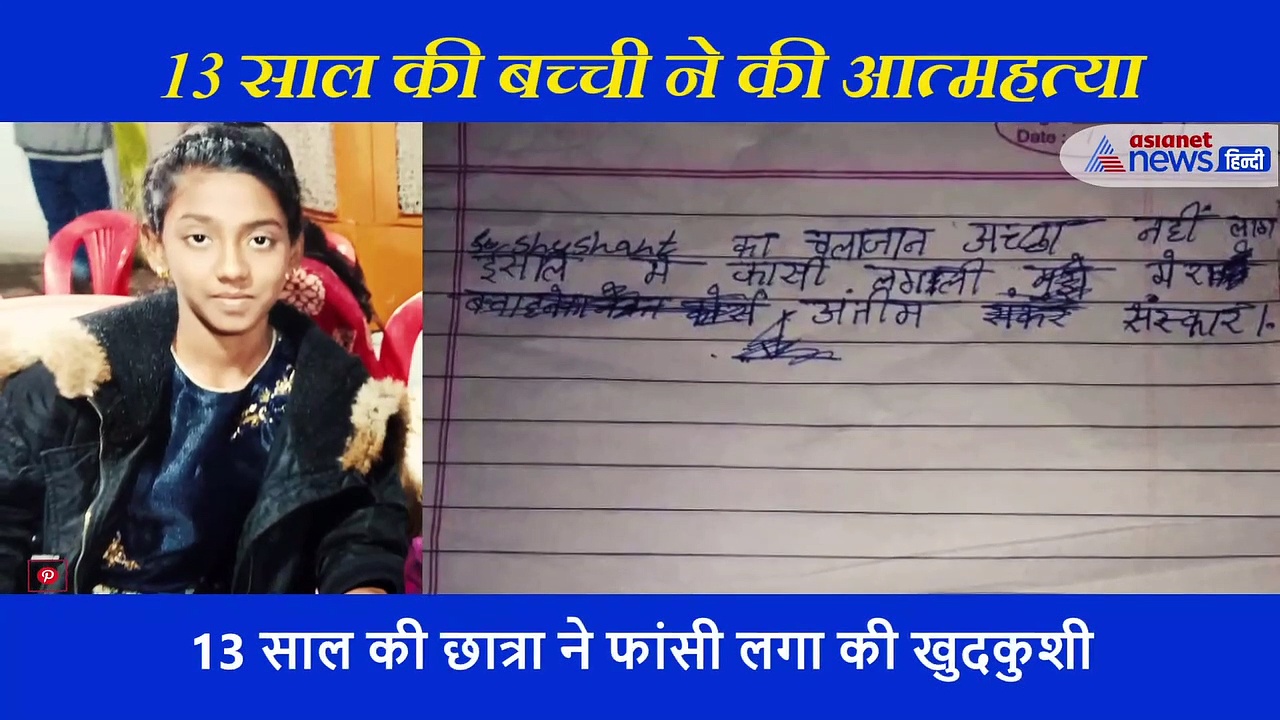 13 साल की बच्ची ने की आत्महत्या
Date :
asianet
news हिन्दी
Sushushant का चलाजान अच्छा नहीं लाग
इसलि मे फासी लगाली मुझे मेरा
अंतीम संस्कार।
13 साल की छात्रा ने फांसी लगा की खुदकुशी